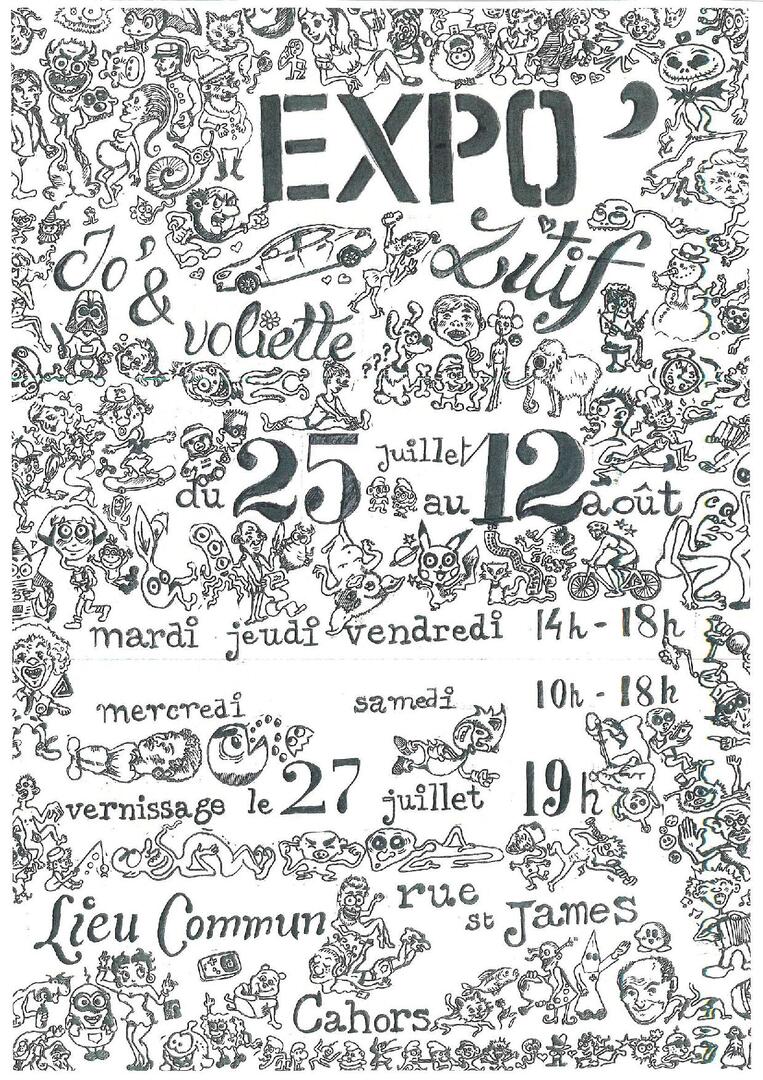 EXPO'
Jo' & voliette
Zitif
du 25 juillet au 12 août
mardi jeudi vendredi 14h - 18h
mercredi samedi 10h - 18h
vernissage le 27 juillet 19h
Lieu Commun rue st James
Cahors